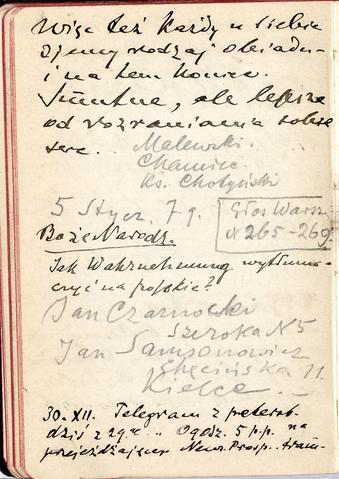 Więc też każdy u siebie
zjemy rodzaj obiadu –
i na tem koniec.
Smutne, ale lepsze
od rozraniania sobie
serc.
Malewski.
Chamiec.
Ks. Chotyński
5 Stycz. 7 g.
Głos Warsz.
N 265–269.
Boże Narodz.
Jak Wahrnehmung wytłuma-
czyć na polskie?
Jan Czarnocki
Szeroka N 5
Jan Samsonowicz
Chęcińska 11.
Kielce. –
30. XII. Telegram z petersb.
dziś z 29. o godz. 5 p.p. na
przejeżdżającym